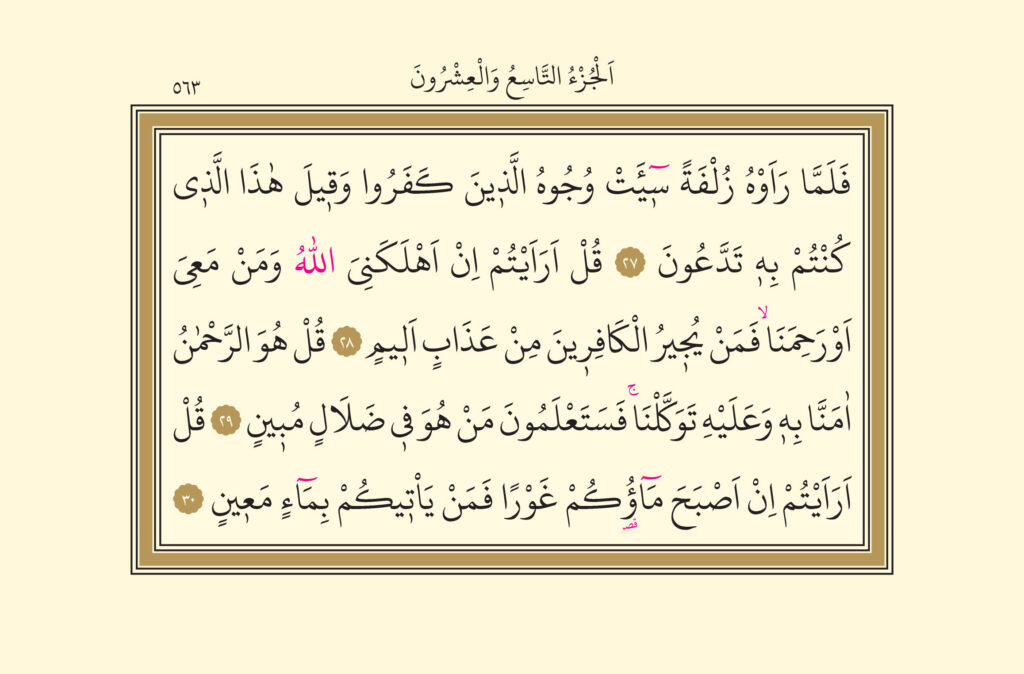 اَلْجُزْءُ التَّاسِعُ وَالْعِشْرُونَ
٥٦٣
فَلَمَّا رَاَوْهُ زُلْفَةً سٖٓيـَٔتْ وُجُوهُ الَّذٖينَ كَفَرُوا وَقٖيلَ هٰذَا الَّذٖى
كُنْتُمْ بِهٖ تَدَّعُونَ ٢٧ قُلْ اَرَاَيْتُمْ اِنْ اَهْلَكَنِىَ اللّٰهُ وَمَنْ مَعِىَ
اَوْ رَحِمَنَاۙ فَمَنْ يُجٖيرُ الْكَافِرٖينَ مِنْ عَذَابٍ اَلٖيمٍ ٢٨ قُلْ هُوَ الرَّحْمٰنُ
اٰمَنَّا بِهٖ وَعَلَيْهِ تَوَكَّلْنَاۚ فَسَتَعْلَمُونَ مَنْ هُوَ فٖى ضَلَالٍ مُبٖينٍ ٢٩ قُلْ
اَرَاَيْتُمْ اِنْ اَصْبَحَ مَٓاؤُ۬كُمْ غَوْرًا فَمَنْ يَاْتٖيكُمْ بِمَٓاءٍ مَعٖينٍ ٣٠